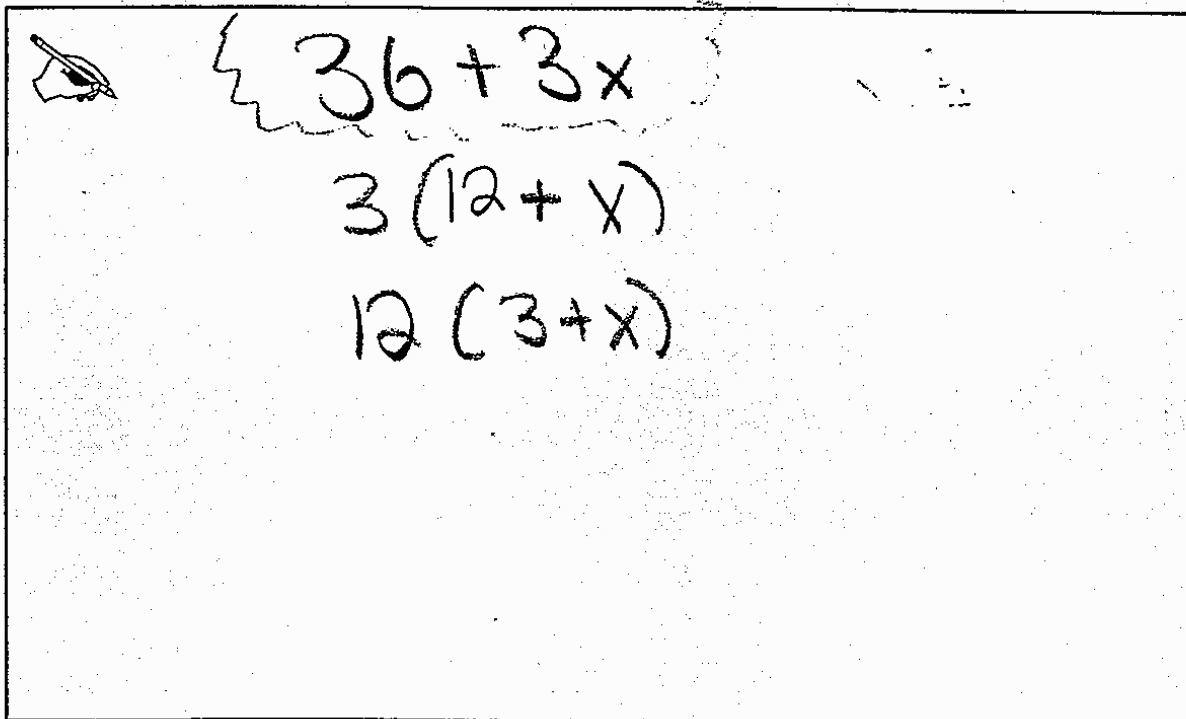 36 + 3x
3 (12 + x)
12 (3 + x)